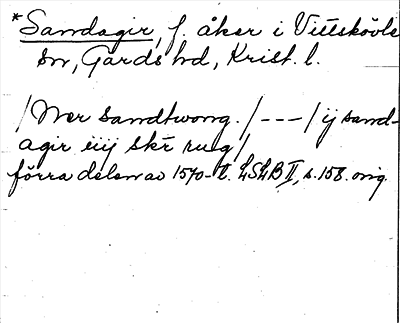 *Sandagir, f. åker i Vittskövle
sn, Gärds hd, Krist. l.
/Wer sandtwong./---/ij sand-
agir iiij skr rug/
förra delen av 1570-t. LSLB II, s. 158. orig.